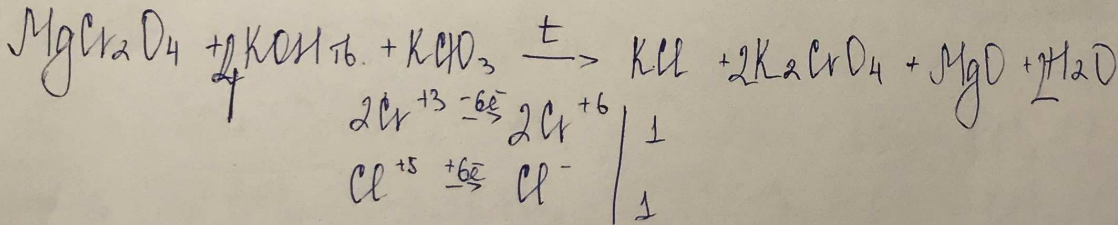 MgCr₂O₄ + 4KOH тв. + KClO₃ →(t) KCl + 2K₂CrO₄ + MgO + 2H₂O
2Cr⁺³ –6e̅→ 2Cr⁺⁶ | 1
Cl⁺⁵ +6e̅→ Cl⁻ | 1